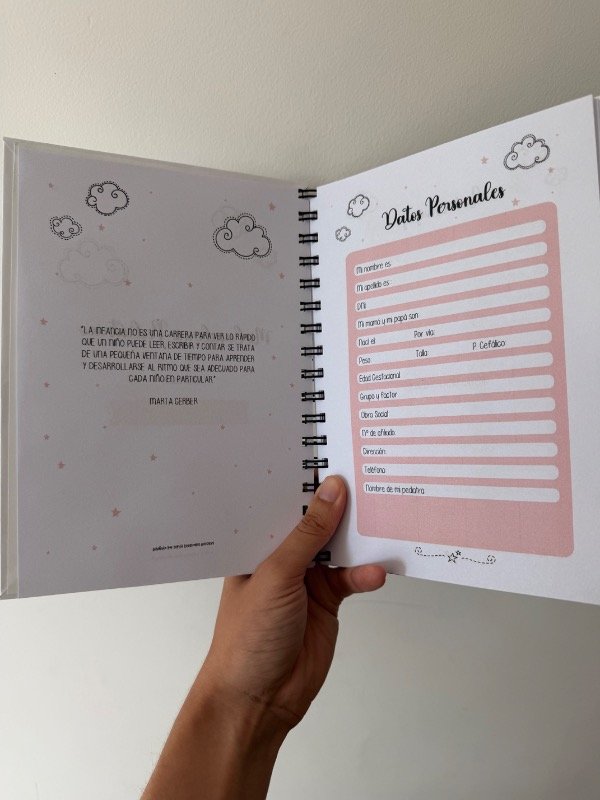 "LA INFANCIA NO ES UNA CARRERA PARA VER LO RÁPIDO
QUE UN NIÑO PUEDE LEER, ESCRIBIR Y CONTAR. SE TRATA
DE UNA PEQUEÑA VENTANA DE TIEMPO PARA APRENDER
Y DESARROLLARSE AL RITMO QUE SEA ADECUADO PARA
CADA NIÑO EN PARTICULAR."
MARTA GERBER
Datos Personales
Mi nombre es:
Mi apellido es:
DNI:
Mi mamá y mi papá son:
Nací el: Por vía:
Peso: Talla: P. Cefálico:
Edad Gestacional:
Grupo y factor:
Obra Social:
Nº de afiliado:
Dirección:
Teléfono:
Nombre de mi pediatra: